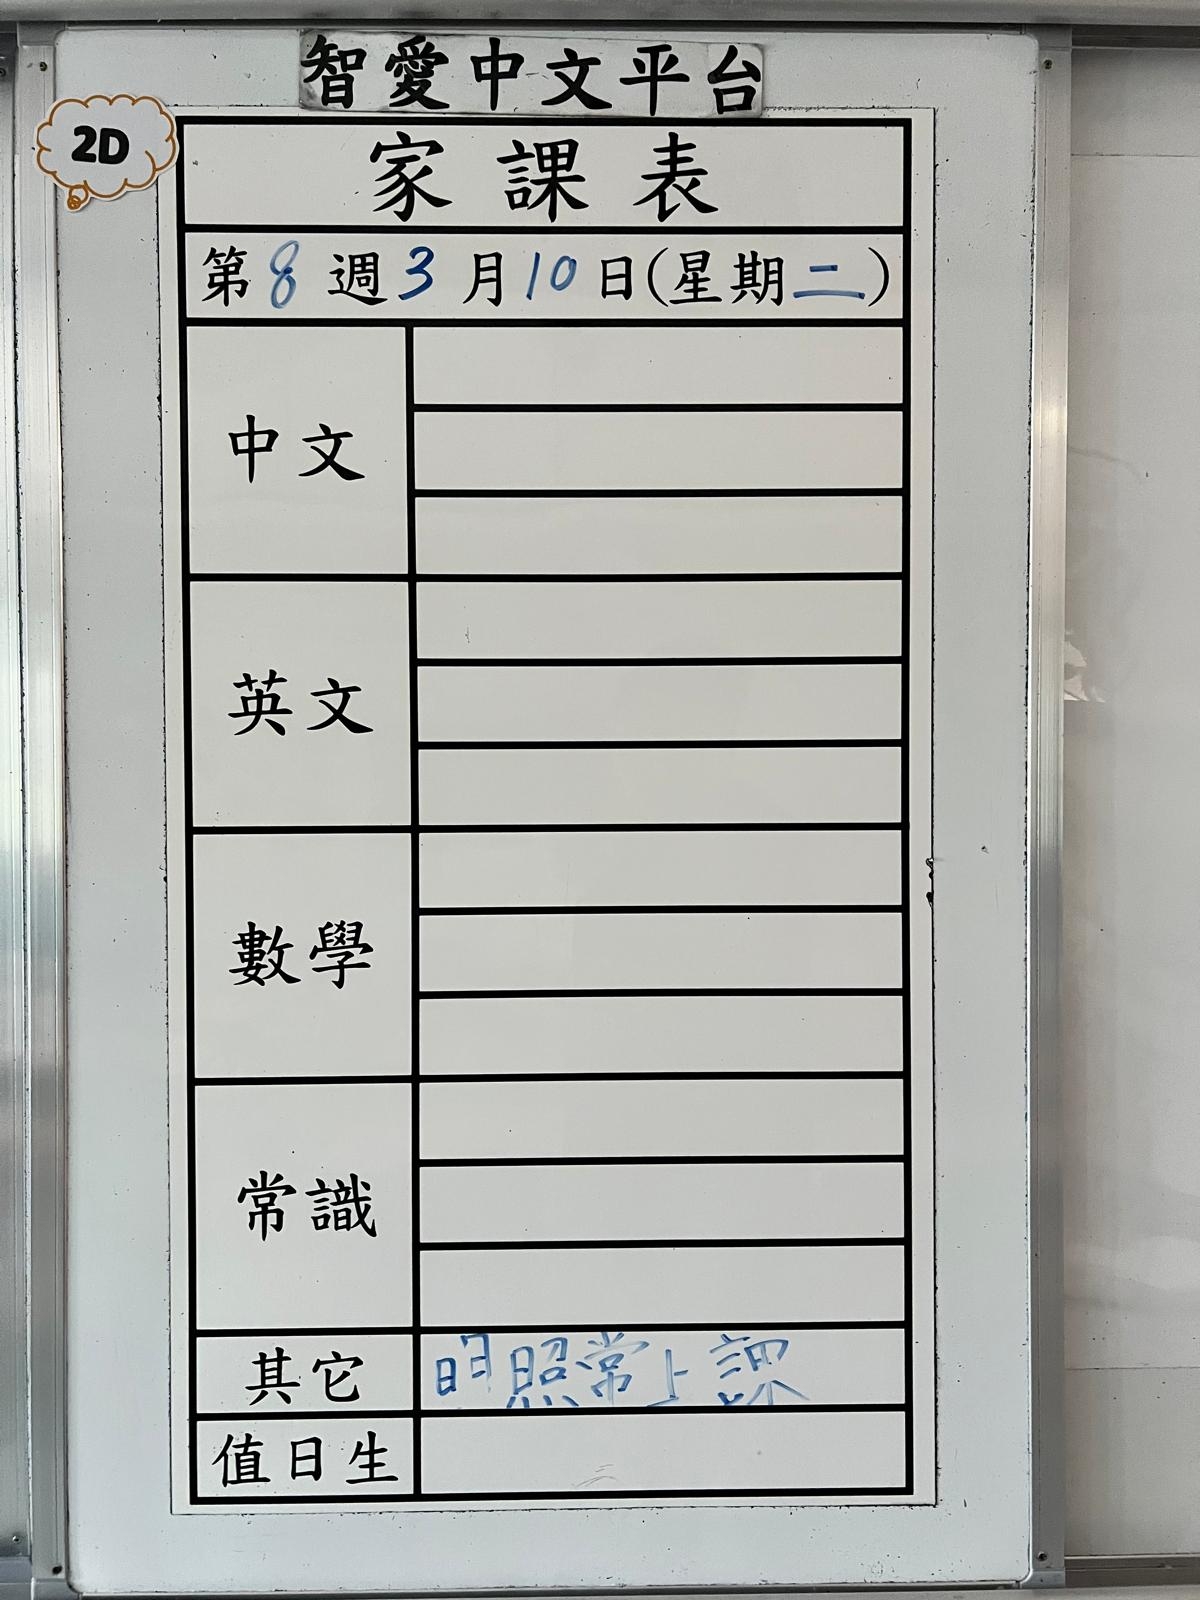 智愛中文平台
2D
家課表
第8週3月10日(星期二)
中文
英文
數學
常識
其它 明照常上課
值日生